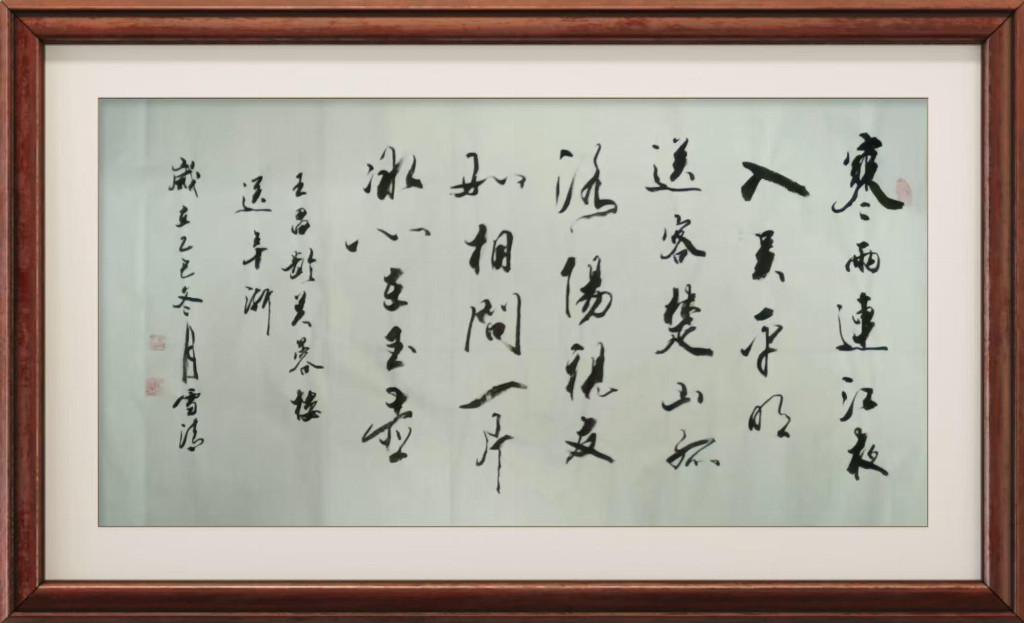 寒雨連江夜
入吴平明
送客楚山孤
洛陽親友
如相問一片
冰心在玉壶
王昌龄芙蓉楼
送辛渐
歲在乙巳冬月雪清